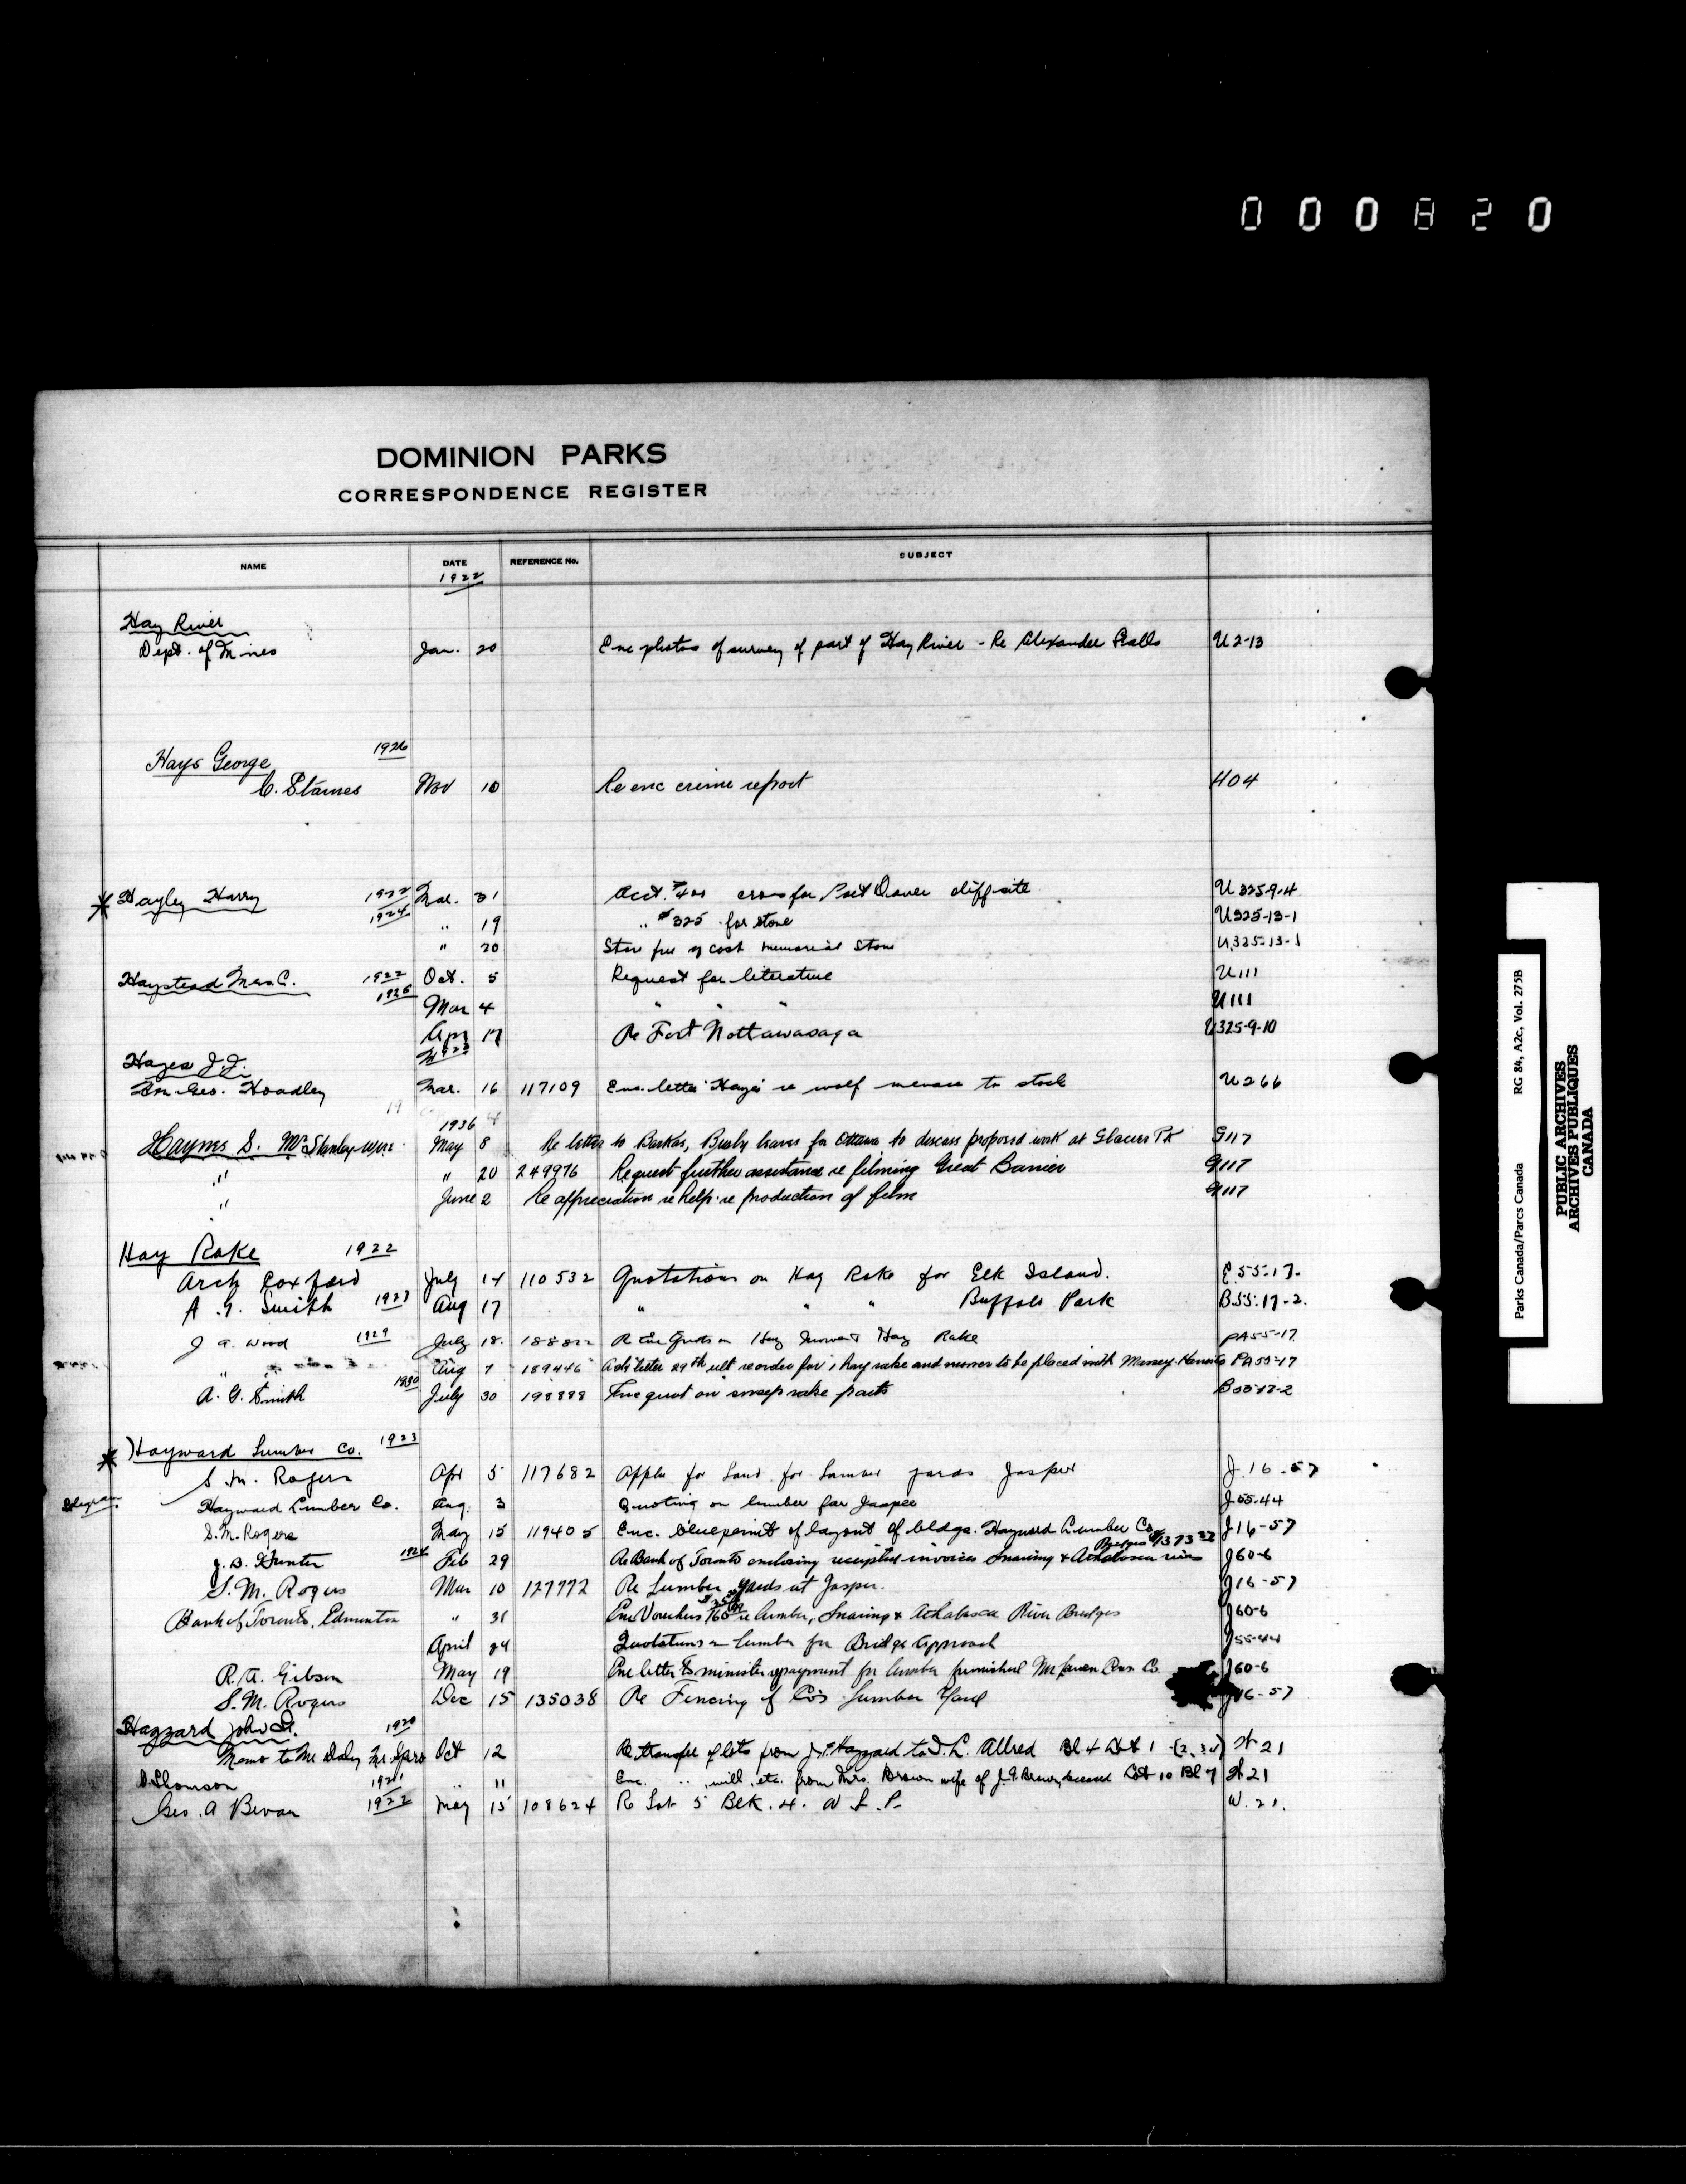 000820
DOMINION PARKS
CORRESPONDENCE REGISTER
NAME DATE REFERENCE No. SUBJECT
1922
Hay River
Dept. of Mines Jan. 20 Enc photos of survey of part of Hay River - Re Alexander Falls U2-13
1926
Hays George
C. Starnes Nov 10 Re enc crime report 404
Hayley Harry 1922 Mar. 31 Acct. cross for Port Dover cliff site U325-9-4
1924 " 19 " $325 for stone U325-13-1
" 20 Store free of cost memorial Stone U325-13-1
Haystead Mrs C. 1922 Oct. 5 Request for literature U111
1925 Mar 4 " " " U111
Apr 17 Re Fort Nottawasaga U325-9-10
1923
Hayes J.J.
Geo. Hoadley Mar. 16 117109 Enc. letter Hayes re wolf menace to stock U266
1936
Haynes S. May 8 Re letter to Barkas, Busby leaves for Ottawa to discuss proposed work at Glacier Pk G117
" " 20 249976 Request further assistance re filming Great Barrier G117
" June 2 Re appreciation re help re production of film G117
Hay Rake 1922
Arch Coxford July 14 110532 Quotations on Hay Rake for Elk Island. E.55-17.
A. G. Smith 1923 Aug 17 " " " Buffalo Park B55-17-2.
J A. Wood 1929 July 18. 188822 Hay Mower & Hay Rake PA55-17
" " Aug 7 189446 Ack letter 29th ult re order for 1 hay rake and mower to be placed with Massey-Harris PA55-17
1930
A. G. Smith July 30 198888 Enc quot on sweep rake parts B55-17-2
Hayward Lumber Co. 1923
S. M. Rogers Apr 5 117682 Appln for Land for Lumber yards Jasper J.16-57
Hayward Lumber Co. Aug. 3 Quoting on lumber for Jasper J55-44
S. M. Rogers May 15 119405 Enc. blueprint of layout of bldgs. Hayward Lumber Co. J16-57
Bridges
J. B. Hunter 1924 Feb 29 Re Bank of Toronto enclosing receipted invoices Snaring & Athabasca river J60-6
S. M. Rogers Mar 10 127772 Re Lumber yards at Jasper. J16-57
Bank of Toronto, Edmonton " 31 Enc Vouchers re lumber, Snaring & Athabasca River Bridges J60-6
April 24 Quotations on lumber for Bridge Approach J55-44
R. A. Gibson May 19 Enc letter to minister re payment for lumber furnished Co. J60-6
S. M. Rogers Dec 15 135038 Re Fencing of Co's Lumber Yard J16-57
Hazzard John T. 1920
Memo to Mr. Daly Oct 12 Re transfer of lots from J.T. Hazzard to D. L. Allred Bl 4 Lot 1 W21
D. Thomson 1921 " 11 Enc. " will, etc. from Mrs. Brown wife of J.G. Brown, deceased Lot 10 Bl 7 W21
Geo. A Bevan 1922 May 15 108624 Re Lot 5 Blk. 4. W. L. P. W. 21.
Parks Canada/Parcs Canada RG 84, A2c, Vol. 275B
PUBLIC ARCHIVES
ARCHIVES PUBLIQUES
CANADA